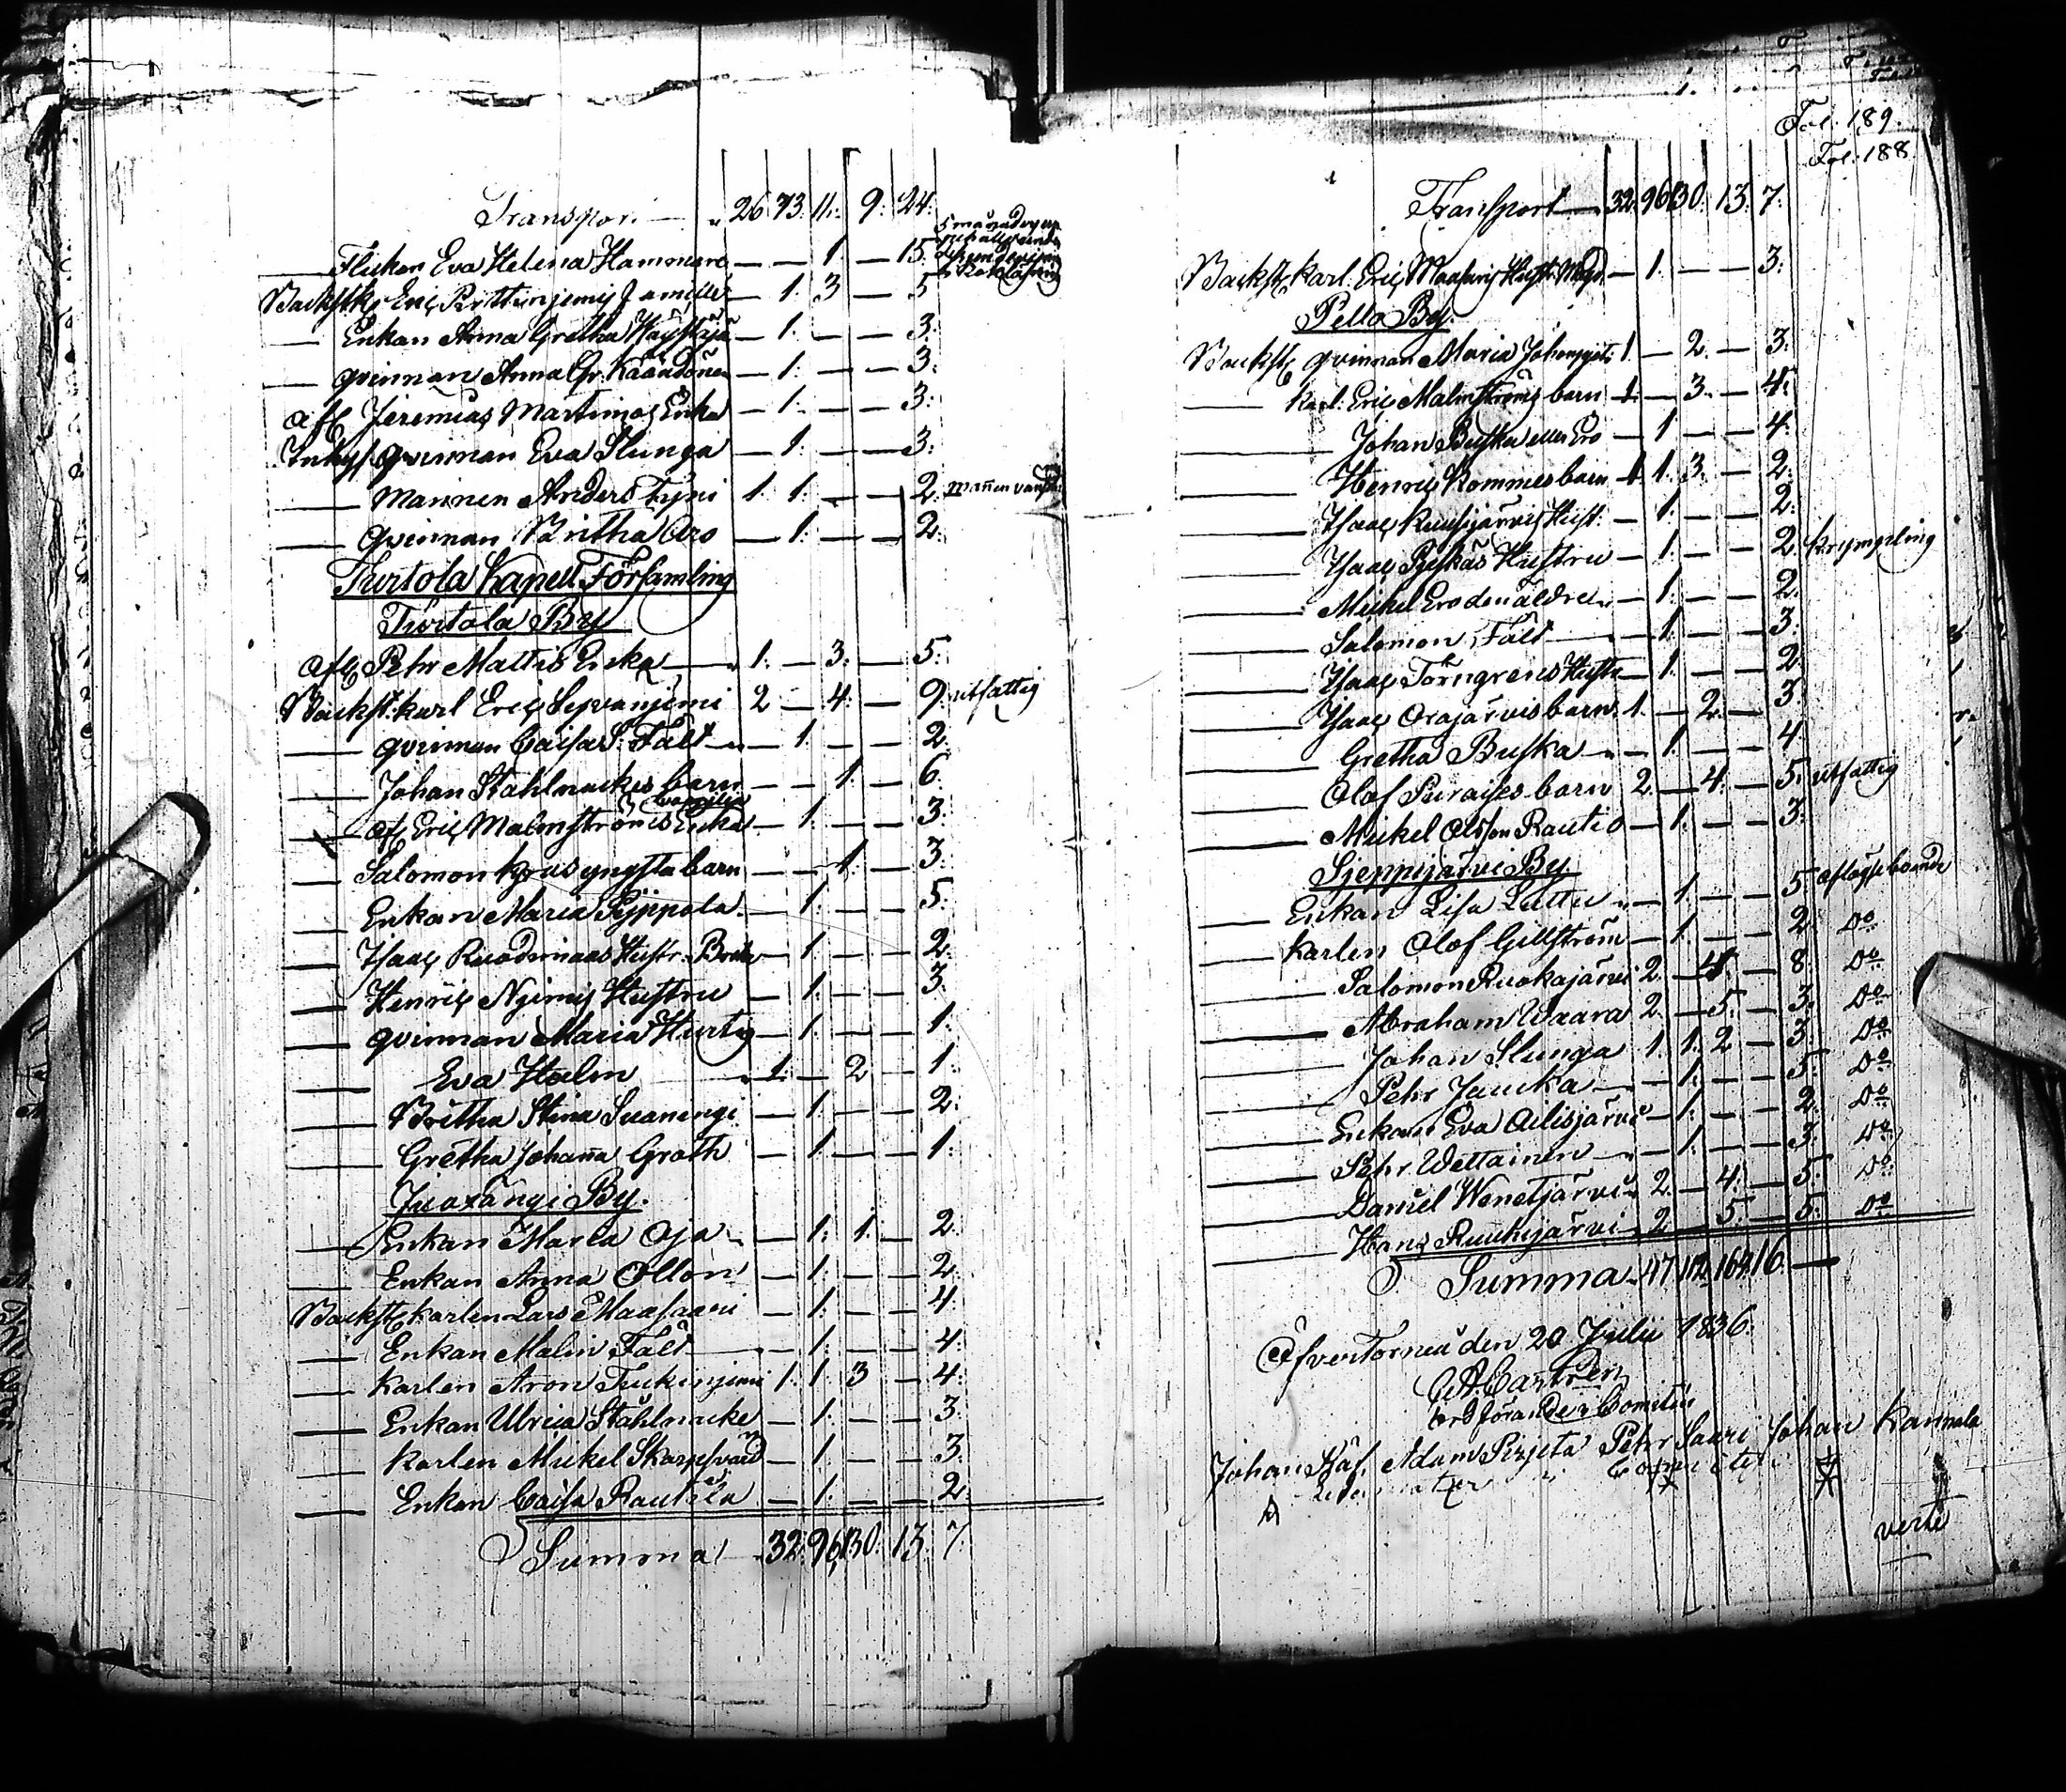 Transport 26. 73. 11. 9. 24.
Flickan Eva Helena Hammare — — 1. — 15. 5 månader
Backstk Eric Perttunjemis familie — 1. 3 — 5
— Enkan Anna Gretha — 1. — — 3.
— qvinnan Anna Gr. — 1. — — 3.
afl. Jeremias Martimos Enka — 1. — — 3.
Inhys qvinnan Eva Slunga — 1. — — 3.
— Mannen Anders Fyni 1. 1. — — 2. Mannen
— qvinnan Britha Aro — 1. — — 2.
Turtola Capell Församling
Turtola By
afl. Pehr Mattis Enka 1. — 3. — 5.
Backst. karl Eric Lepvanjemi 2 — 4. — 9. utfattig
— qvinnan Caisa S. Fält — 1. — — 2.
— Johan Stahlnackes barn — — 1. — 6.
familia
— afl Eric Malmströms Enka — 1. — — 3.
— Salomon yngsta barn — — 1. — 3.
— Enkan Maria Pijppola — 1. — — 5.
— Isaac Ruodimaas Hustr. Brita — 1. — — 2.
— Henric Nijmis Hustru — 1. — — 3.
— qvinnan Maria Hurtig — 1. — — 1.
— Eva Halm 1. — 2 — 1.
— Britha Stina Suanengi — 1. — — 2.
— Gretha Johanna Groth — 1. — — 1.
Juoxangi By.
— Enkan Maria Oja — 1. 1. — 2.
— Enkan Anna Ollon — 1. — — 2.
Backst. karlen Lars Maasaari — 1. — — 4.
— Enkan Malin Fält — 1. — — 4.
— Karlen Aron 1. 1. 3 — 4.
— Enkan Ulrica Ståhlnacke — 1. — — 3.
— Karlen Mickel Skarpsvärd — 1. — — 3.
— Enkan Caisa Rautila — 1. — — 2.
Summa 32. 96. 130. 13. 7.
Fol. 189.
Fol. 188
Transport 32. 96. 130. 13. 7.
Backst. Karl Eric Maasaris Hust. — 1. — — 3.
Pello By.
Backst. qvinnan Maria 1. — 2. — 3.
— Karl Eric Malmströms barn 1. — 3. — 4.
— Johan Buska eller Ero — 1. — — 4.
— Henric Kommes barn 1. 1. 3. — 2.
— Isaac Ruusijärvis Hust. — 1. — — 2.
— Isaac Hustru — 1. — — 2. Krympling
— Mickel Ero den äldre — 1. — — 2.
— Salomon Fält — 1. — — 3.
— Isaac Törngrens Hustr — 1. — — 2.
— Isaac Orajärvis barn 1. — 2. — 3.
— Gretha Buska — 1. — — 4
— Olof barn 2. — 4. — 5. utfattig
— Mickel Olsson Rautio — 1. — — 3.
Sjeppijärvi By.
— Enkan Lisa Luttu — 1. — — 5 aflägse boende
— Karlen Olof Gillström — 1. — — 2 Do
— Salomon Ruokajärvi 2. — 4. — 8. Do
— Abraham Waara 2. — 5. — 3. Do
— Johan Slunga 1. 1. 2 — 3. Do
— Pehr Jaucka — 1. — — 5. Do
— Enkan Eva Ailisjärvi — 1. — — 2. Do
— Pehr Wettainen — 1. — — 3. Do
— Daniel Wenetjärvi 2. — 4. — 5. Do
— Hans Ruuhijärvi 2. — 5. — 5. Do
Summa 47. 112. 164. 16. —
Öfver Torneå den 20 Julii 1836.
Castren
ordförande i Comitén
Johan Adam Pirjeta Pehr Saari Johan Kannala
verte